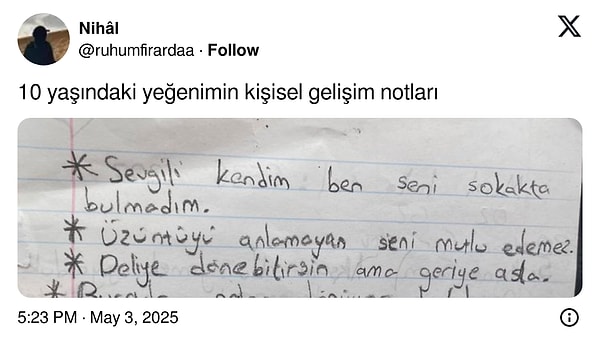 Nihâl
@ruhumfirardaa · Follow
X
10 yaşındaki yeğenimin kişisel gelişim notları
* Sevgili kendim ben seni sokakta
bulmadım.
* Üzüntüyü anlamayan seni mutlu edemez.
* Deliye dönebilirsin ama geriye asla.
*
5:23 PM · May 3, 2025